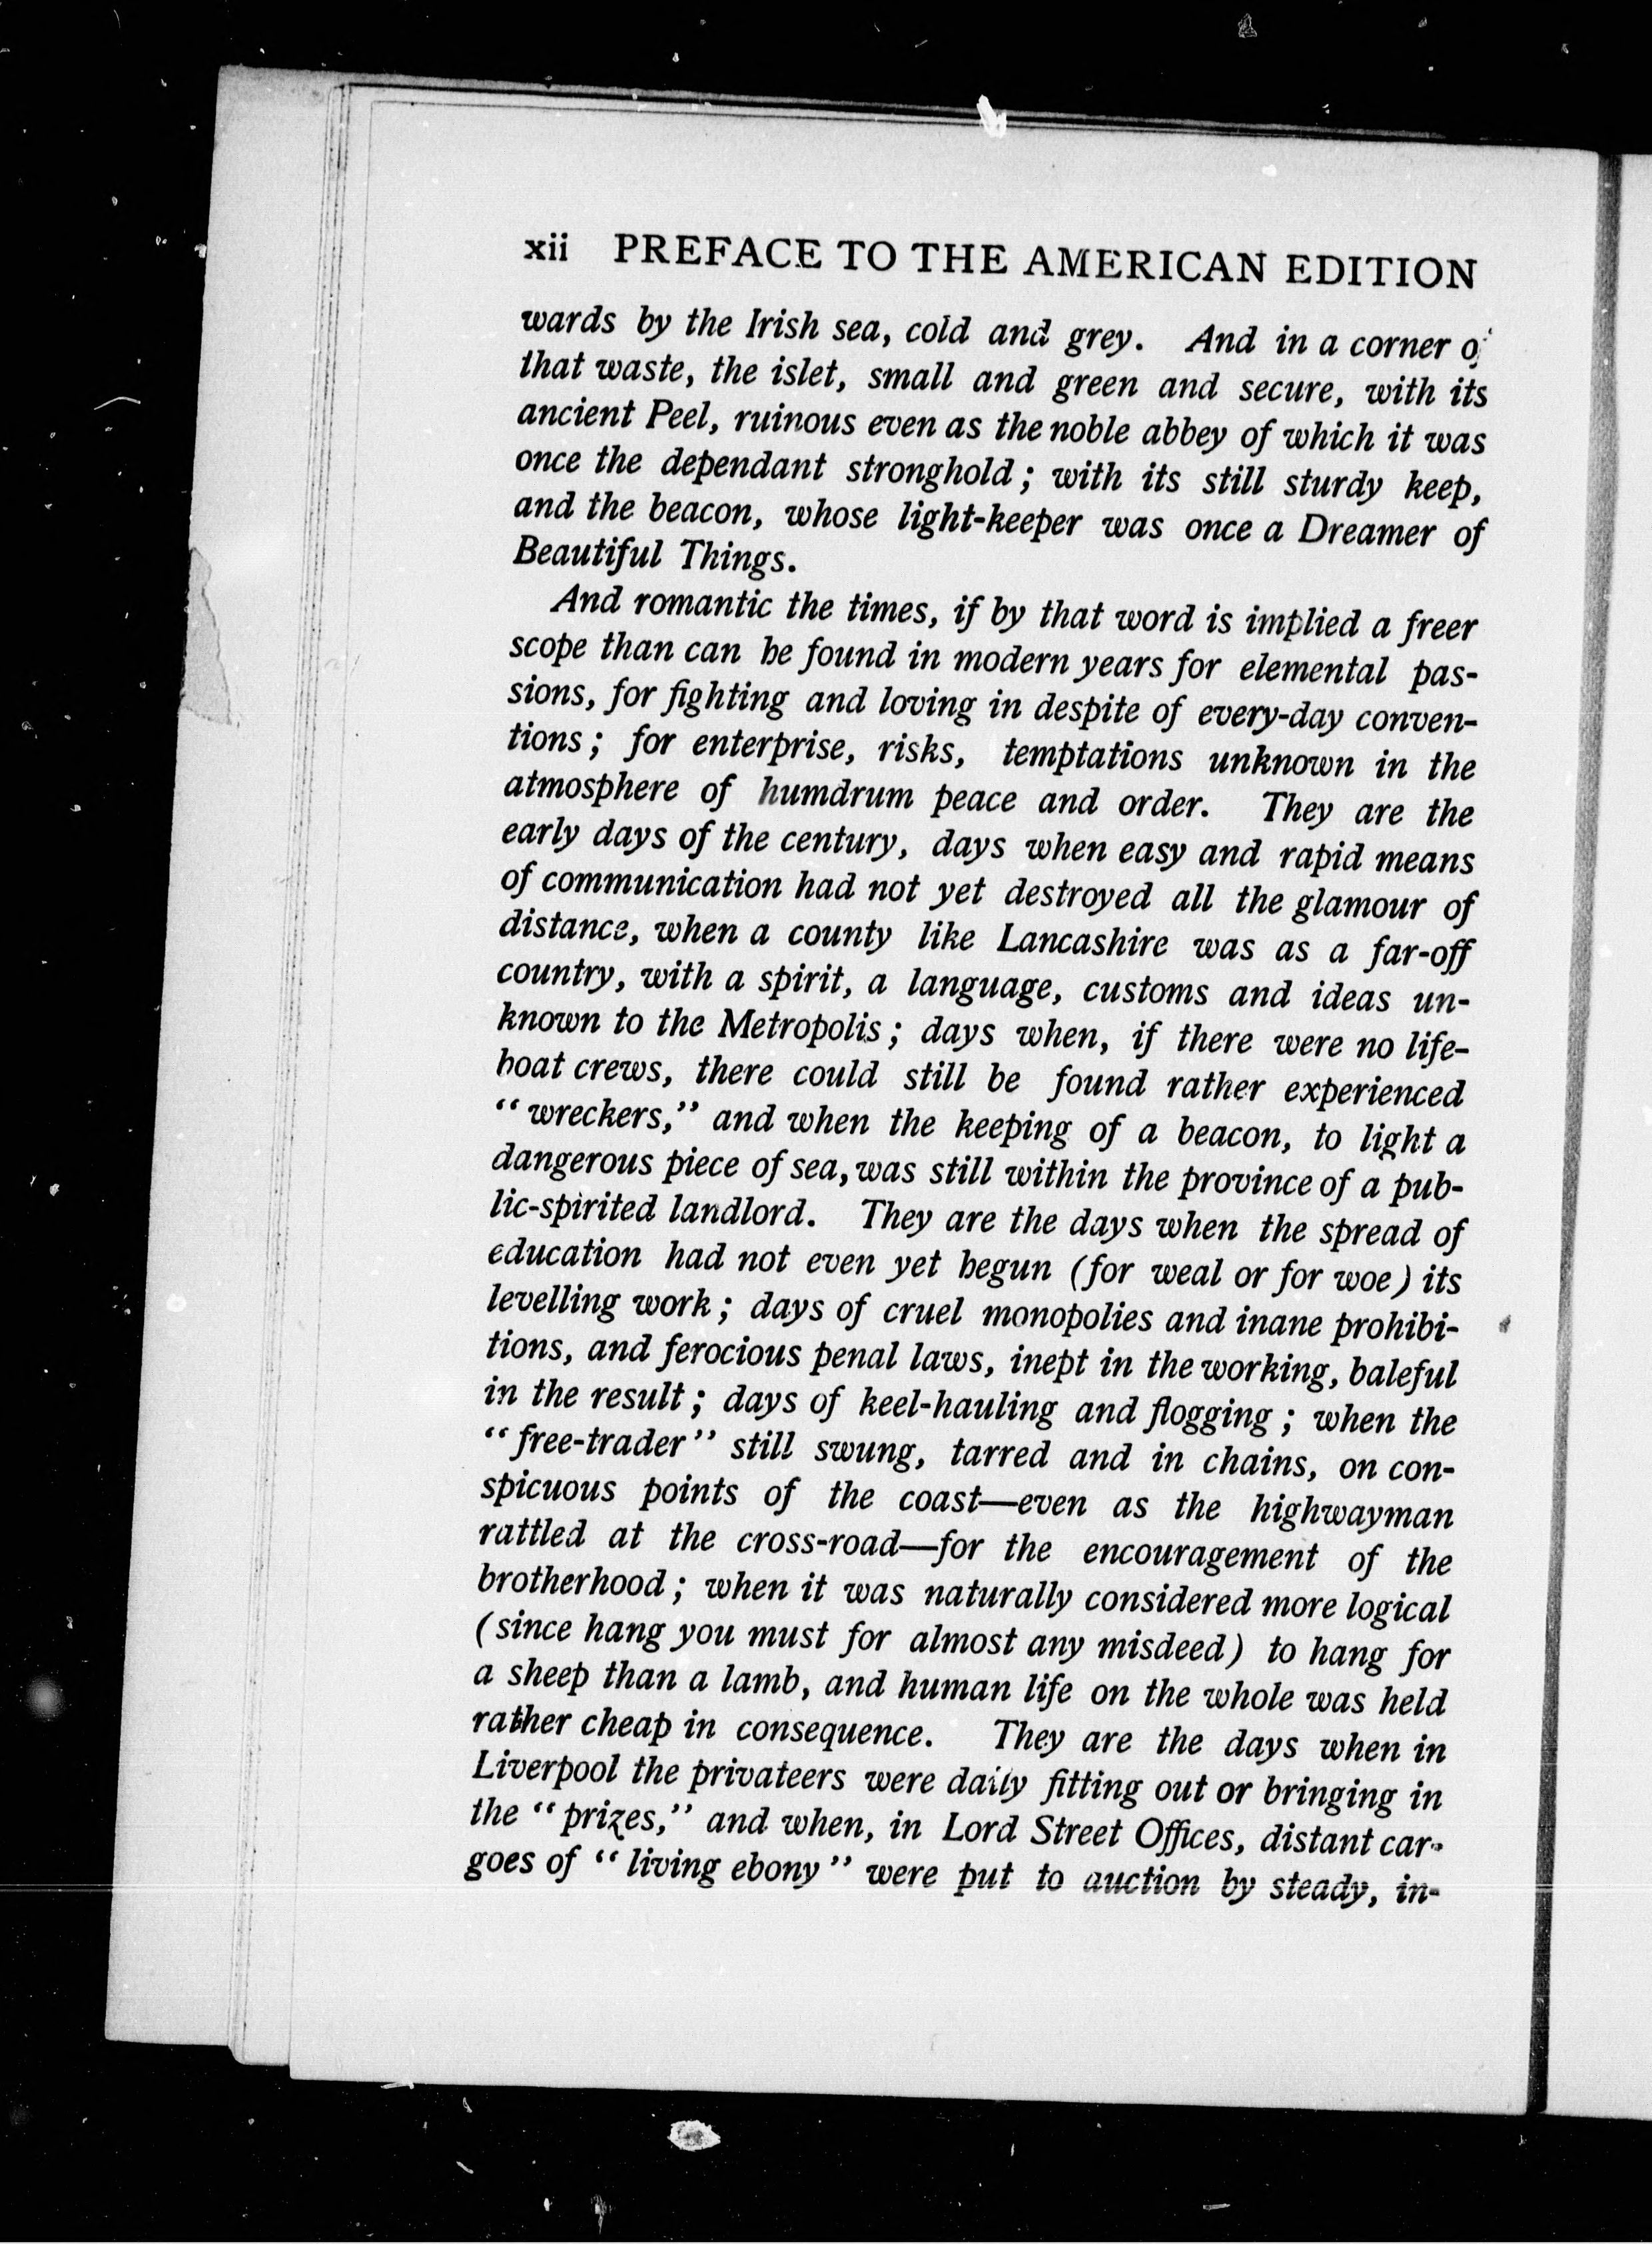 xii PREFACE TO THE AMERICAN EDITION
wards by the Irish sea, cold and grey. And in a corner of
that waste, the islet, small and green and secure, with its
ancient Peel, ruinous even as the noble abbey of which it was
once the dependant stronghold; with its still sturdy keep,
and the beacon, whose light-keeper was once a Dreamer of
Beautiful Things.
And romantic the times, if by that word is implied a freer
scope than can be found in modern years for elemental pas-
sions, for fighting and loving in despite of every-day conven-
tions; for enterprise, risks, temptations unknown in the
atmosphere of humdrum peace and order. They are the
early days of the century, days when easy and rapid means
of communication had not yet destroyed all the glamour of
distance, when a county like Lancashire was as a far-off
country, with a spirit, a language, customs and ideas un-
known to the Metropolis; days when, if there were no life-
boat crews, there could still be found rather experienced
"wreckers," and when the keeping of a beacon, to light a
dangerous piece of sea, was still within the province of a pub-
lic-spirited landlord. They are the days when the spread of
education had not even yet begun (for weal or for woe) its
levelling work; days of cruel monopolies and inane prohibi-
tions, and ferocious penal laws, inept in the working, baleful
in the result; days of keel-hauling and flogging; when the
"free-trader" still swung, tarred and in chains, on con-
spicuous points of the coast—even as the highwayman
rattled at the cross-road—for the encouragement of the
brotherhood; when it was naturally considered more logical
(since hang you must for almost any misdeed) to hang for
a sheep than a lamb, and human life on the whole was held
rather cheap in consequence. They are the days when in
Liverpool the privateers were daily fitting out or bringing in
the "prizes," and when, in Lord Street Offices, distant car-
goes of "living ebony" were put to auction by steady, in-